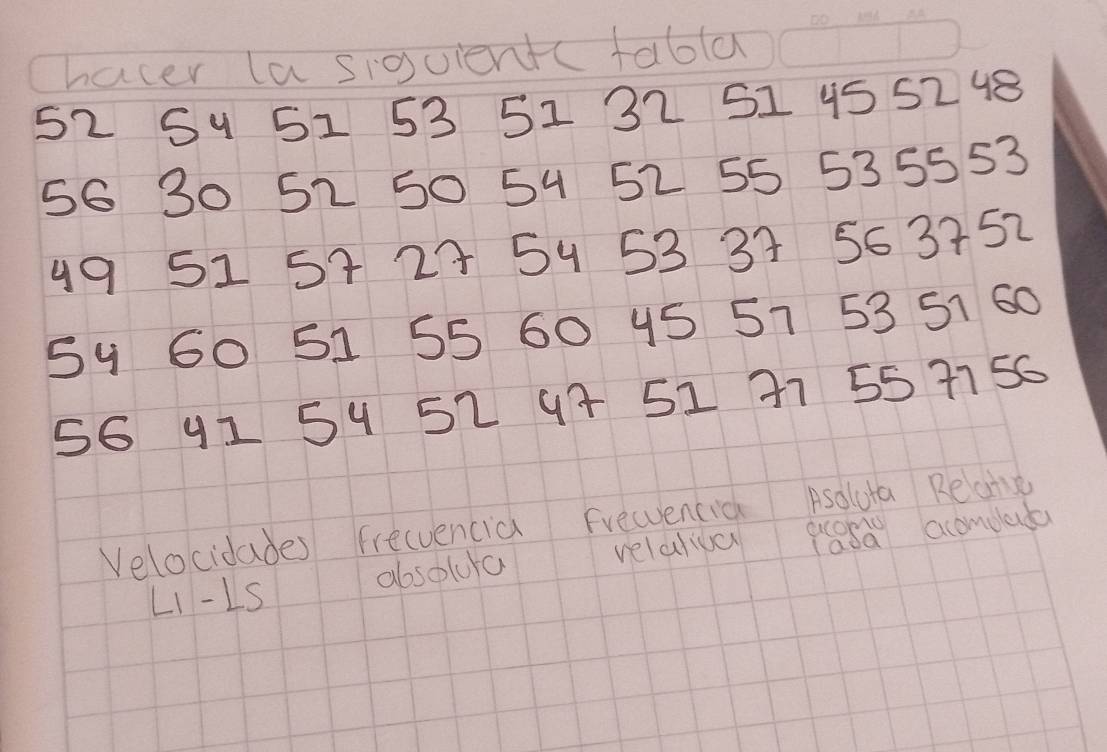 hacer la siguiente tabla
52 54 51 53 51 32 51 45 52 48
56 30 52 50 54 52 55 53 55 53
49 51 57 27 54 53 37 56 37 52
54 60 51 55 60 45 57 53 51 60
56 41 54 52 47 51 71 55 71 56
Velocidades frecuencia Frecuencia Asoluta Relative
LI-LS absoluta relativa acomulada acomulada